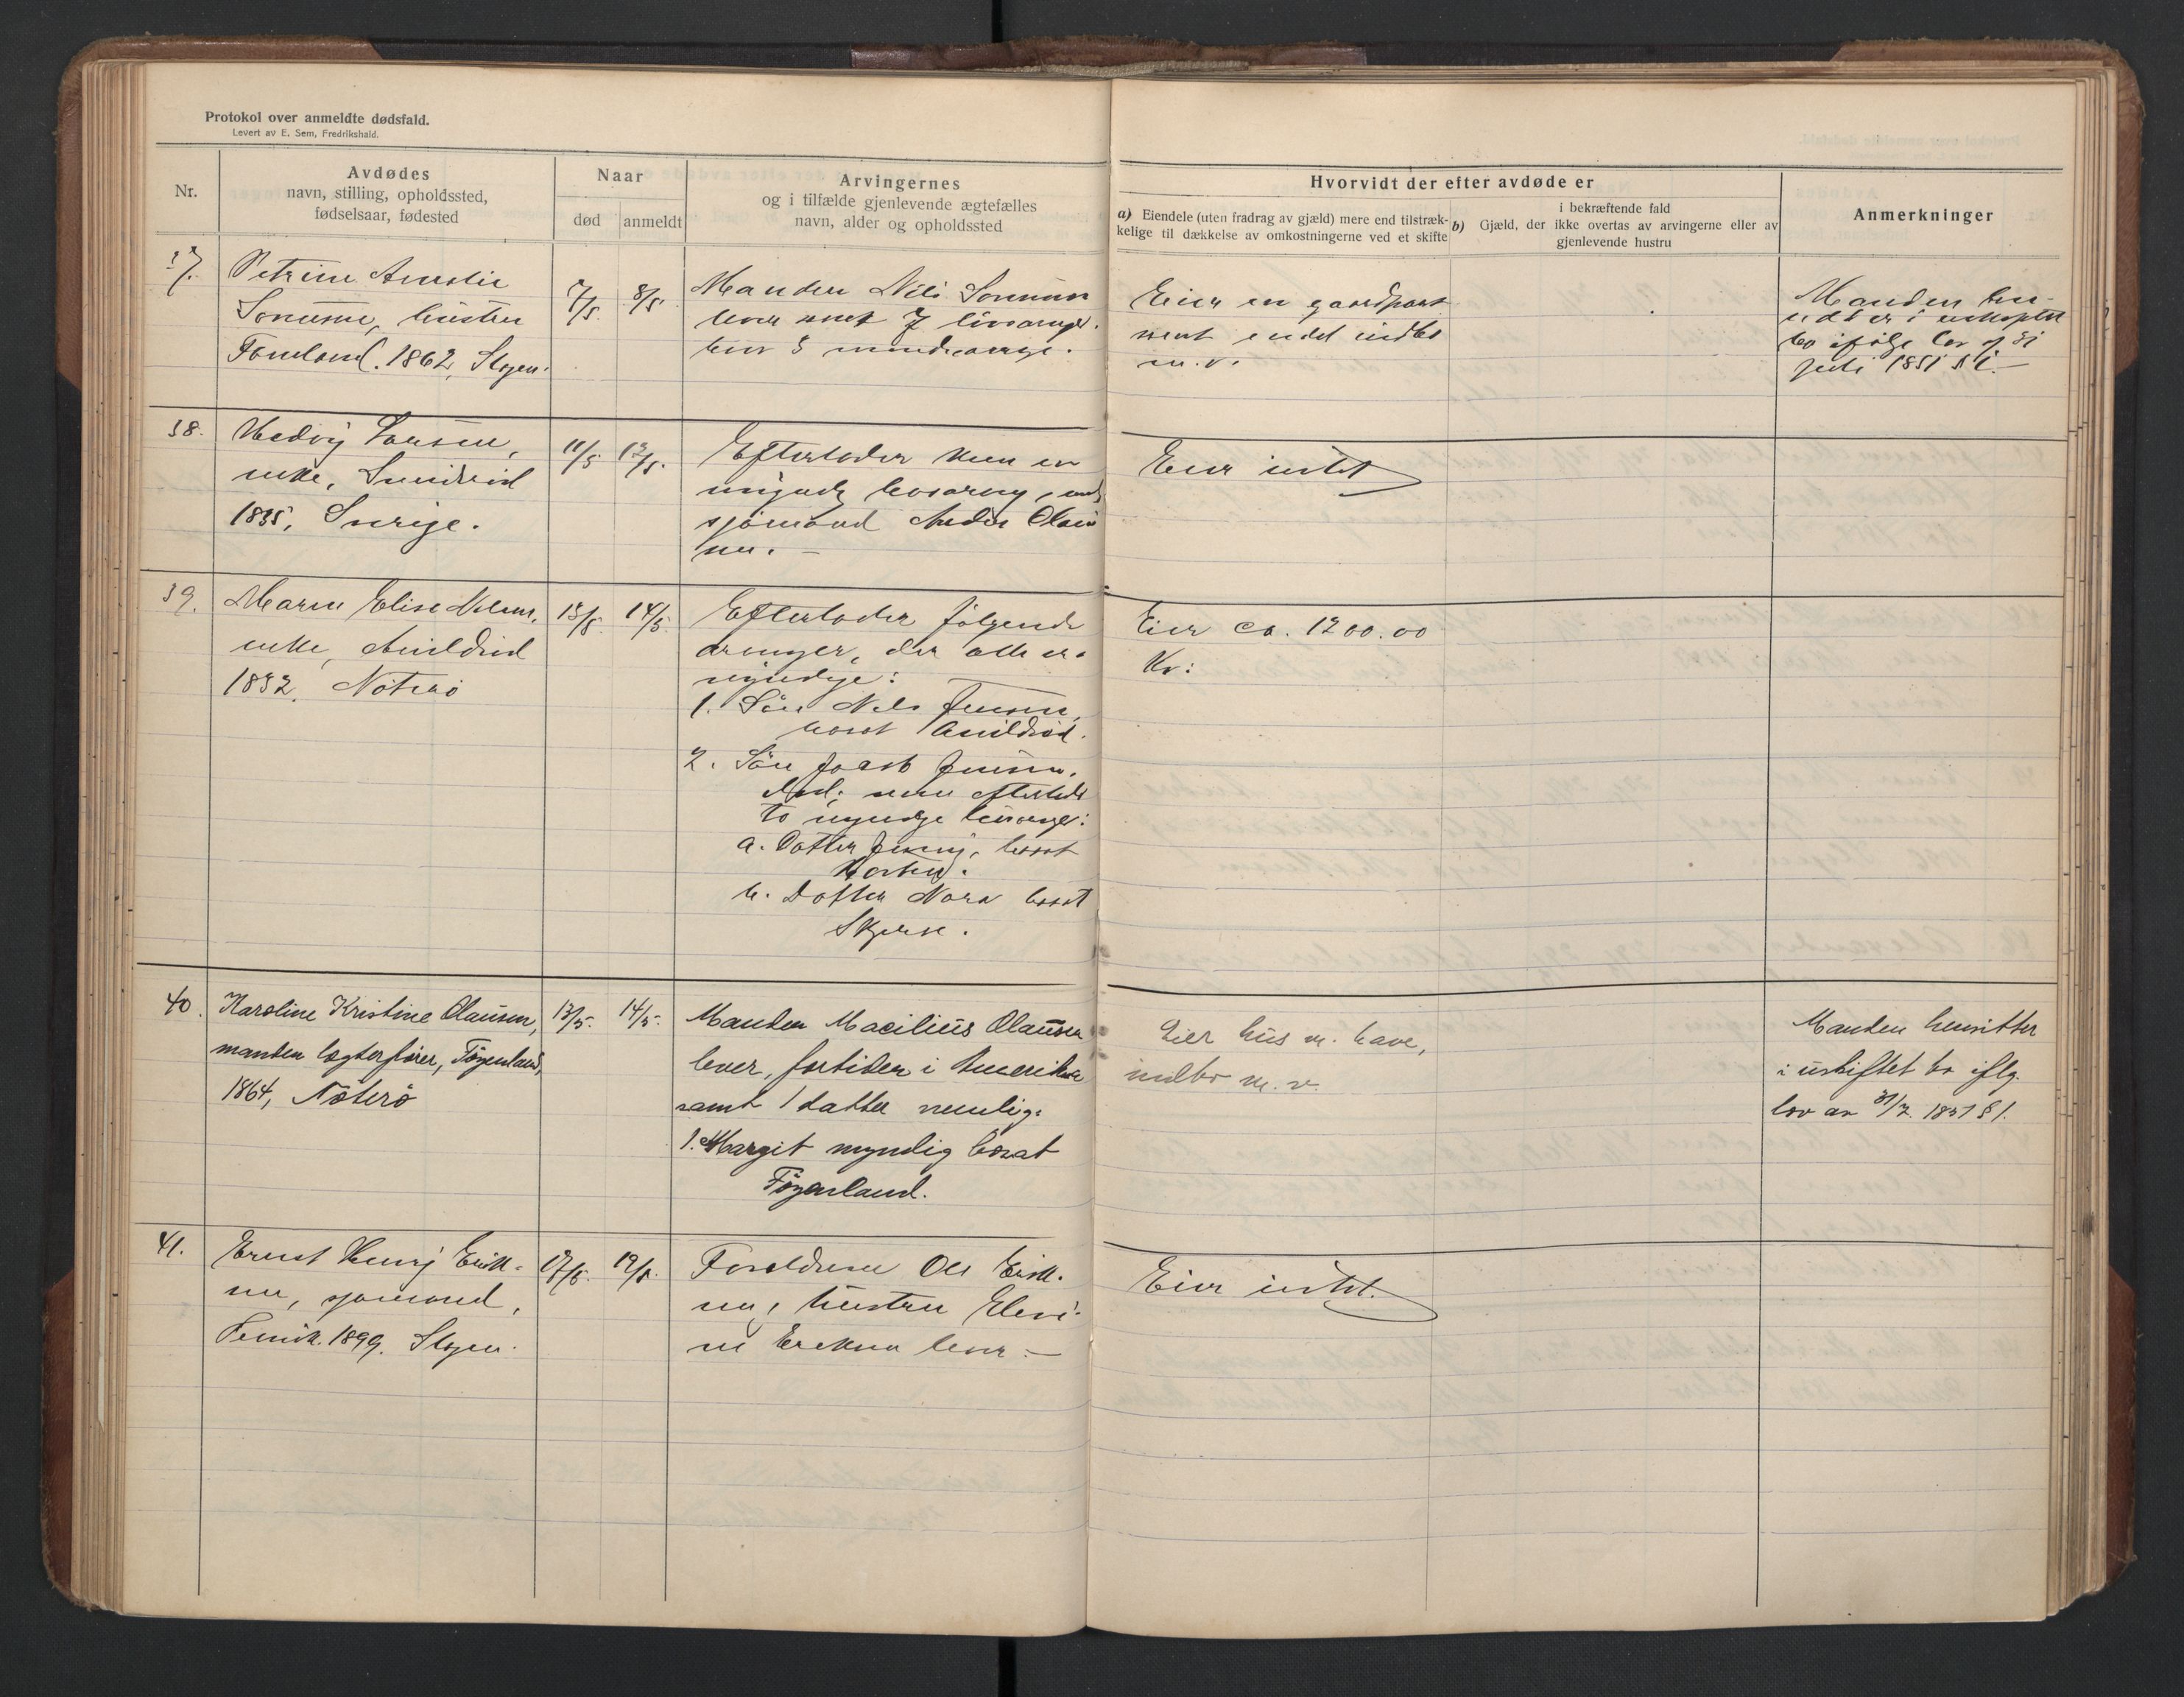 Protokol over anmeldte dødsfald.
Levert av E. Sem, Fredrikshald.
Nr.
Avdødes
navn, stilling, opholdssted,
fødselsaar, fødested
Naar
død
anmeldt
Arvingernes
og i tilfælde gjenlevende ægtefælles
navn, alder og opholdssted
Hvorvidt der efter avdøde er
a) Eiendele (uten fradrag av gjæld) mere end tilstræk-
kelige til dækkelse av omkostningerne ved et skifte
i bekræftende fald
b) Gjæld, der ikke overtas av arvingerne eller av
gjenlevende hustru
Anmerkninger
37.
Petrine Amalie
hustru
1862, Slagen.
7/5. 8/5.
Manden Nils
lever samt 7 livsarvinger.
Eier en gaardpart
samt endel indbo
m. v.
Manden
i uskiftet
bo ifølge lov af 31
juli 1851 § 1. —
38.
Hedvig
enke,
1835, Sverige.
11/5 12/5.
Efterlader kun en
myndig livsarving,
sjømand Anders Olau-
sen. —
Eier intet
39.
Maren Elise Nilsen,
enke,
1832, Nøterø
13/5. 14/5.
Efterlader følgende
arvinger, der alle er
myndige:
1. Søn Nils Jensen,
bosat
2. Søn Jensen,
død;
to myndige livsarvger:
a. Datter Jenny, bosat
Horten.
b. Datter Nora bosat
Eier ca. 1200.00
Kr:
40.
Karoline Kristine Olausen,
manden lægterfører, Føyenland,
1864, Nøterø
13/5. 14/5.
Manden Macilius Olausen
lever, fortiden i Amerika
samt 1 datter nemlig:
1. Margit myndig bosat
Føyenland.
Eier hus m. have,
indbo m. v.
Manden hensitter
i uskiftet bo iflg.
lov av 31/7. 1851 § 1.
41.
Ernst Henry Erik-
sen, sjømand,
1899. Slagen.
17/5. 19/5.
Forældrene Ole Erik-
sen, hustru Elevi-
ne Eriksen lever. —
Eier intet.